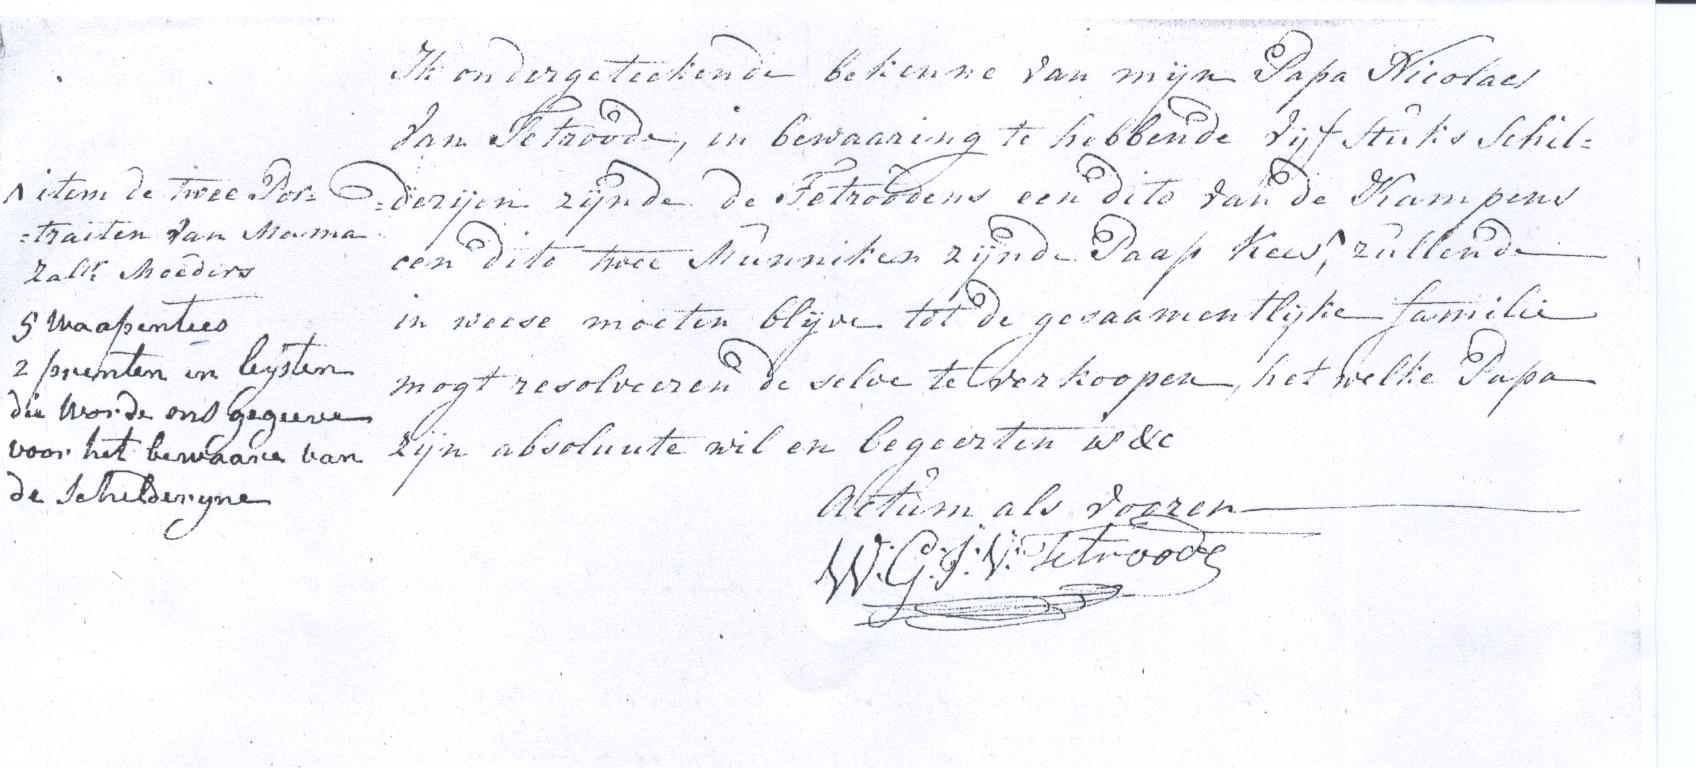 Ik ondergeteekende bekenne van mijn Papa Nicolaes
van Tetroode, in bewaaring te hebbende vijf stuks Schil=
=derijen zijnde de Tetroodens een dito van de Kampens
een dito twee Munniken zijnde Paap Kees, ^ zullende
in weese moeten blijve tot de gesaamentlijke familie
mogt resolveeren de selve te verkoopen, het welke Papa
zijn absoluute wil en begeerten is &c
Actum als vooren
W: G: J: V: Tetroode
^ item de twee Por-
=traiten van Mama
zalr Moeders
5 Waapenties
2 prenten in leijsten
die worde ons gegeeve
voor het bewaare van
de Schelderyne